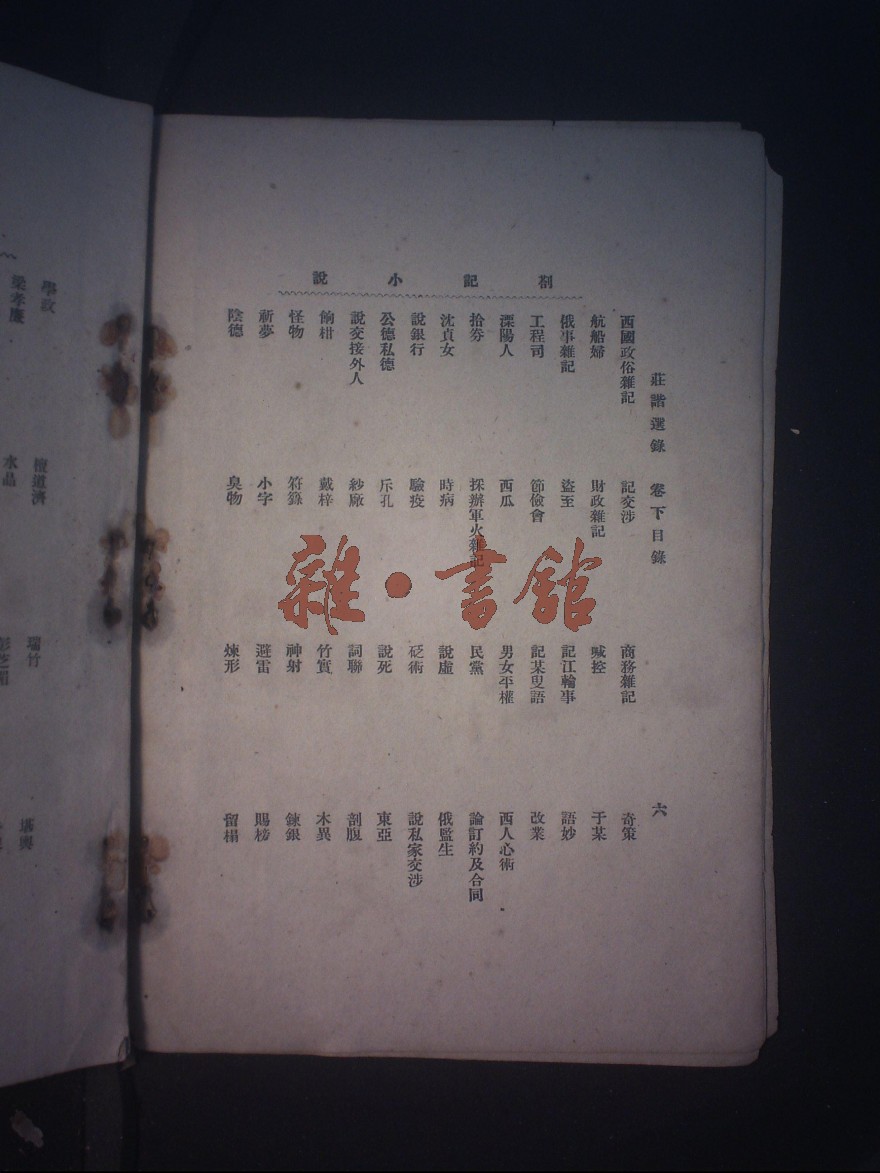 劄記小說
莊諧選錄 卷下目錄 六
西國政俗雜記 記交涉 商務雜記 奇策
航船婦 財政雜記 喊控 于某
俄事雜記 盜至 記江輪事 語妙
工程司 節儉會 記某叟語 改業
溧陽人 西瓜 男女平權 西人心術
拾券 採辦軍火雜記 民黨 論訂約及合同
沈貞女 時病 說虛 俄監生
說銀行 驗疫 砭術 說私家交涉
公德私德 斥孔 說死 東亞
說交接外人 紗廠 詞聯 剖腹
餉柑 戴梓 竹實 木異
怪物 符籙 神射 鍊銀
祈夢 小字 避雷 賜榜
陰德 臭物 煉形 留榻
學政 檀道濟 瑞竹
梁孝廉 水晶
雜·書館